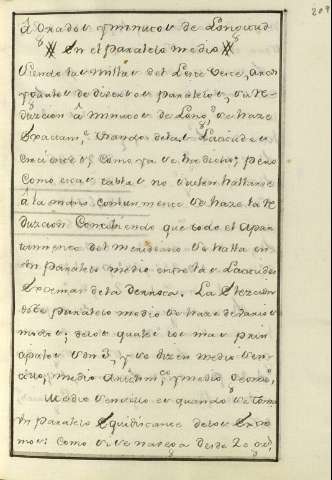 209
â Grados y minutos de Longitud
# En el paralelo medio #
Siendo las millas del Leste Oeste, arcos
formados de diversos paralelos, su re-
duzcion â minutos de Long.d se haze
Exactam.te usando de las Lacitudes
crecientes, como ya se ha dicho; pero
como estas tablas no suelen hallarse
â la mano comunmente se haze la re
duzcion Concibiendo que todo el apar
tamiento del meridiano se halla en
un paralelo medio entre las Lacitudes
Extremas de la derrota. La Elezcion
deste paralelo medio se haze de varios
modos; de los quales los mas prin
zipales son 3, y se dizen medio sen-
cillo, medio Arithm.co, y medio Geomé.co
Medio sencillo es quando se toma
un paralelo Equidistante de los Extre
mos: Como si se navega desde 20 gd.s